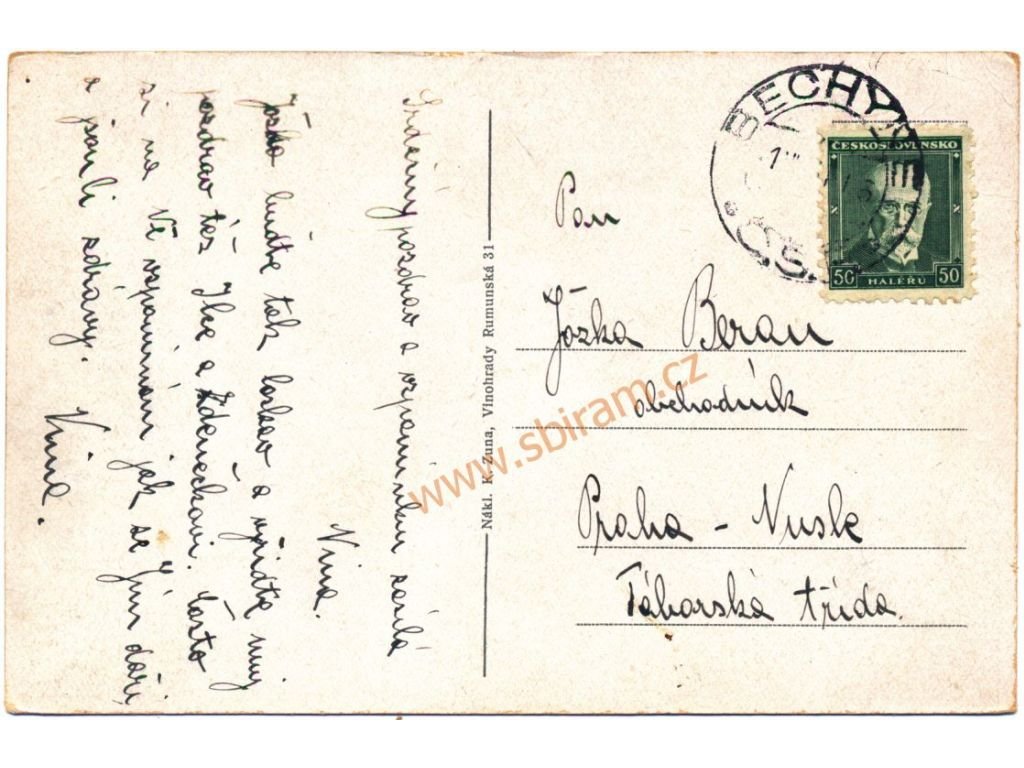 Srdečný pozdrav a vzpomínku zasílá
Nina.
Jožko buďte tak laskav a vyřiďte můj
pozdrav též a Zdenečkovi. Často
si na Vás vzpomínám jak se Vám daří
a jsou-li zdrávy.
Nina.
Nákl. K. Zuna, Vinohrady Rumunská 31
BECHY
ČESKOSLOVENSKO
50 HALÉŘŮ 50
Pan
Józka Beran
obchodník
Praha - Nusle
Táborská třída.
www.sbiram.cz